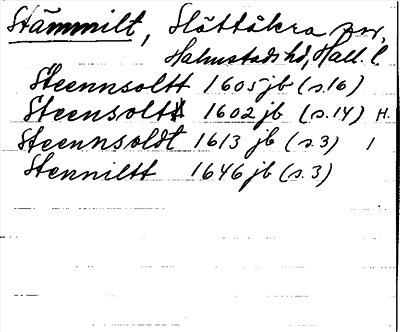 Stämmilt, Slättåkra sn,
Halmstads hd, Hall. l
Steennsoltt 1605 jb (s.16)
Steensoltt 1602 jb (s.14) H.
Steennsoldt 1613 jb (s.3) 1
Stenniltt 1646 jb (s.3)